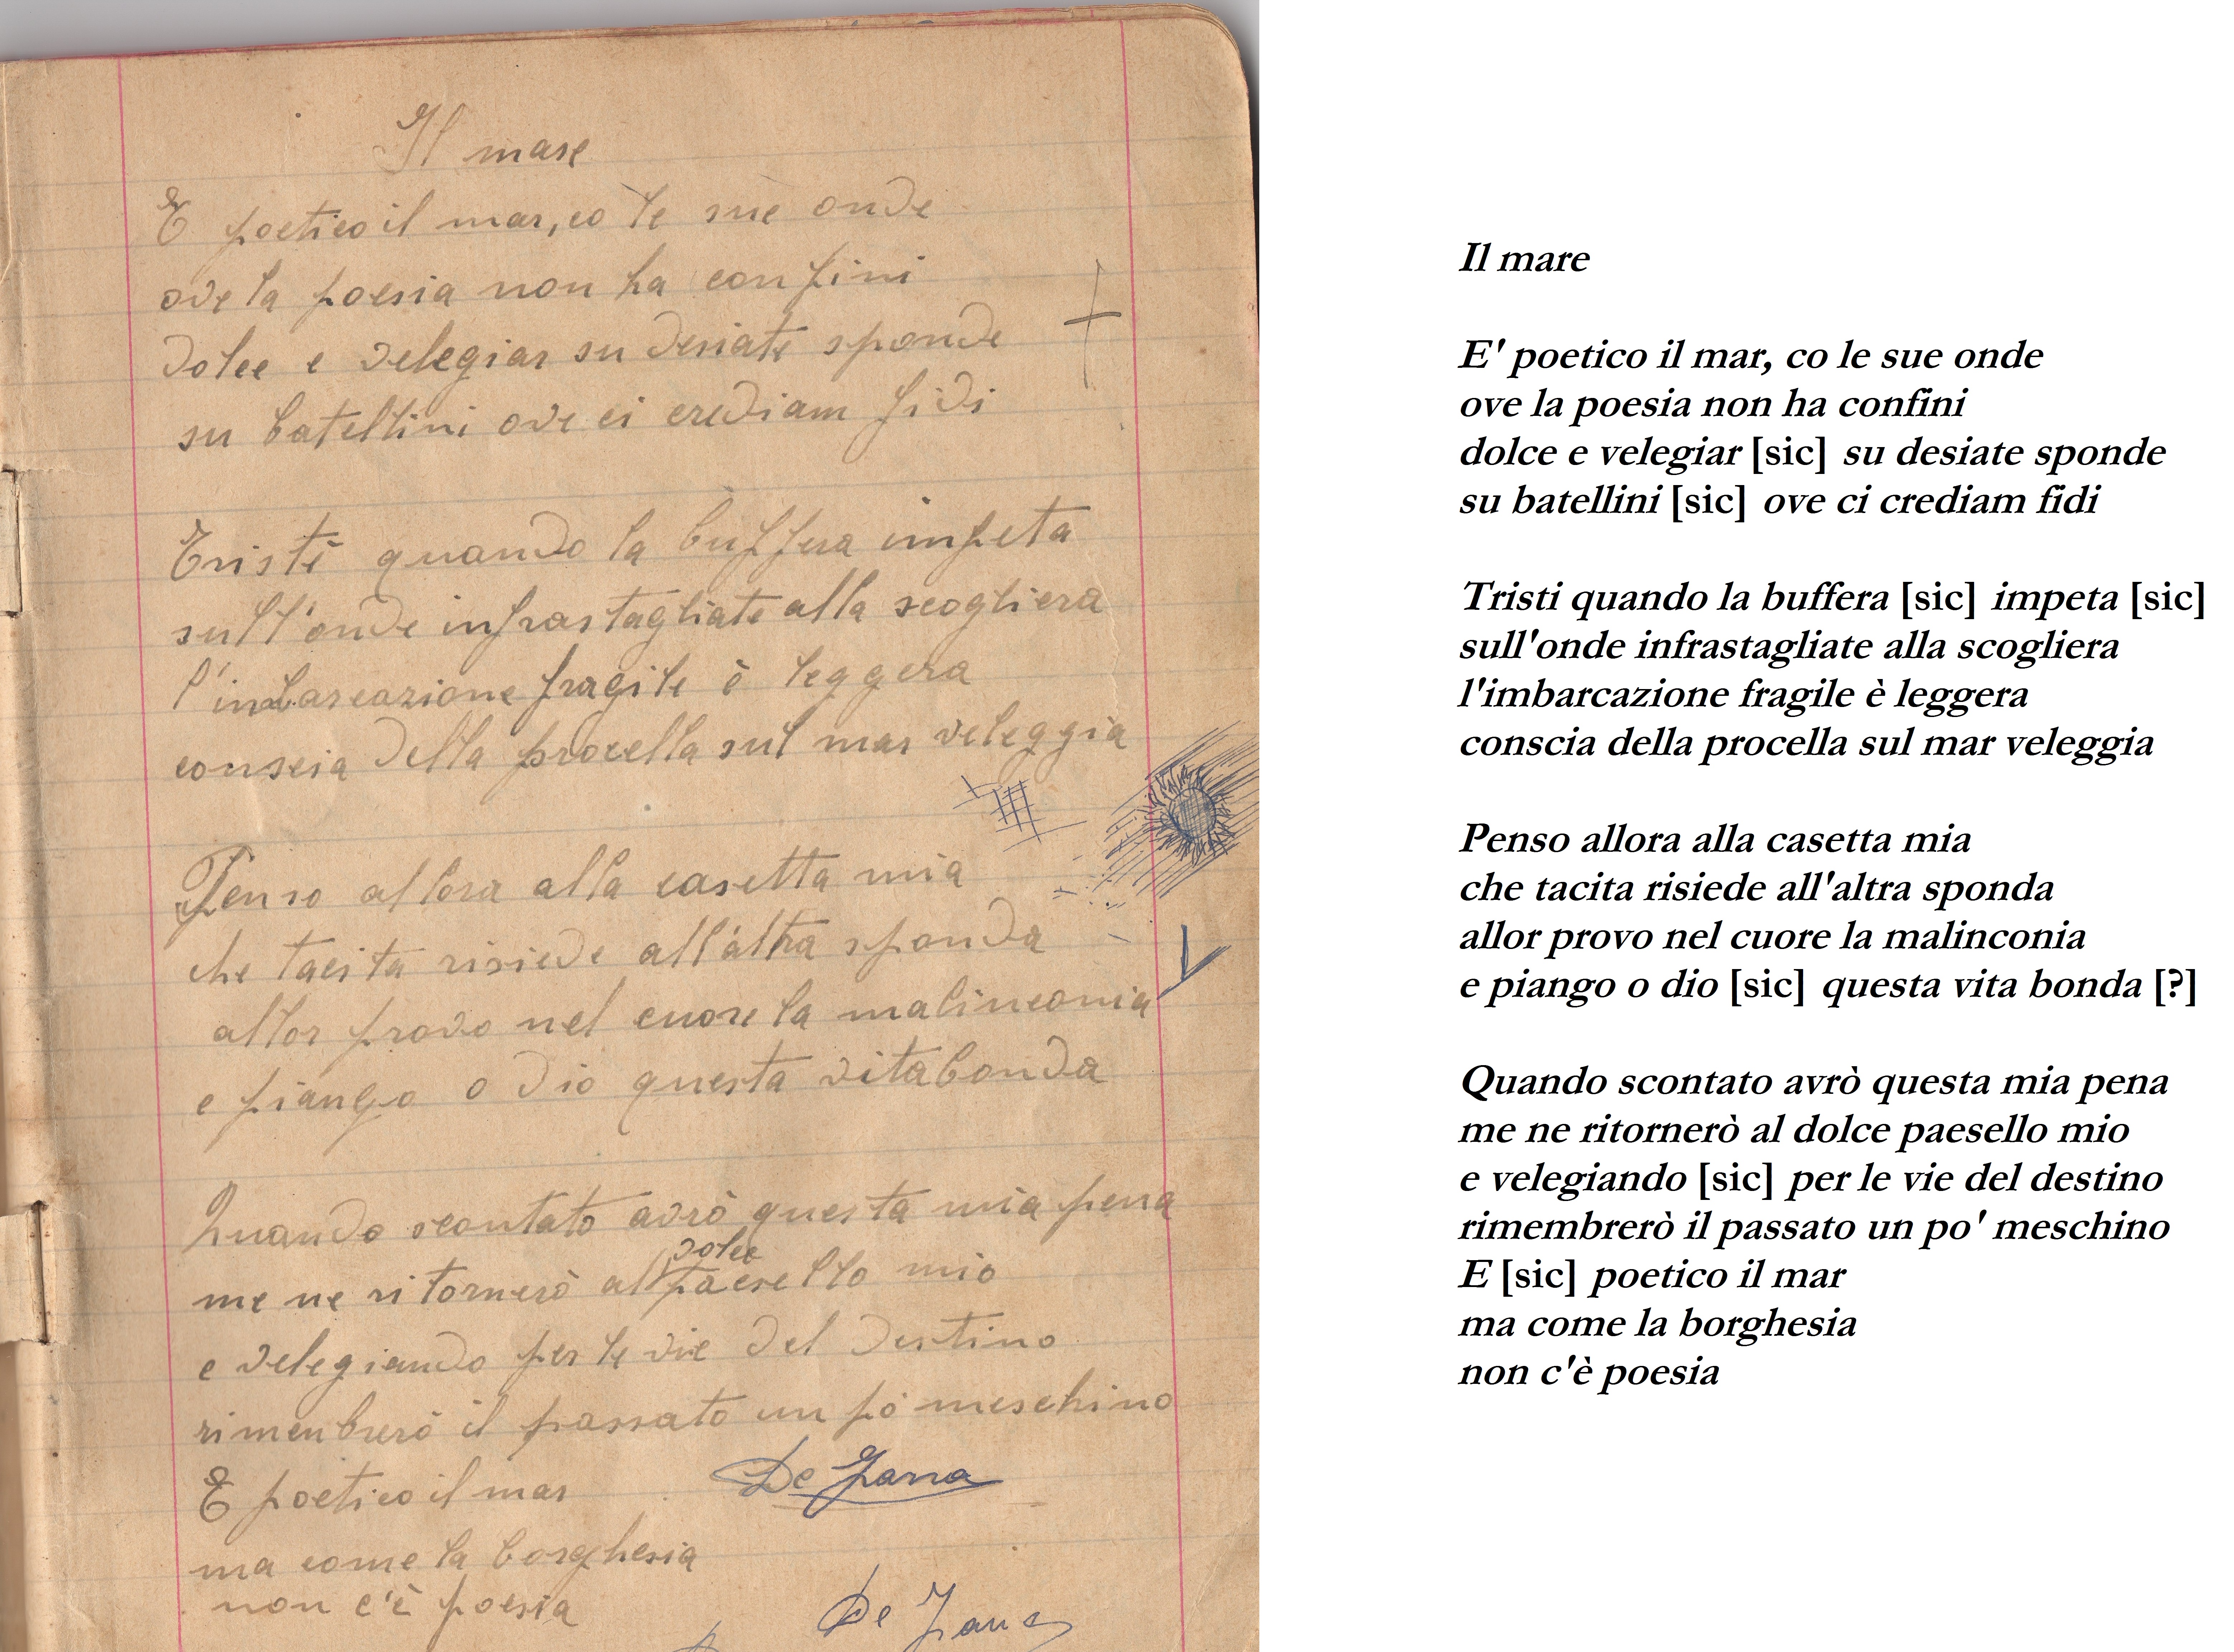 Il mare
E poetico il mar, co le sue onde
ove la poesia non ha confini
dolce e velegiar su desiate sponde
su batellini ove ci crediam fidi
Tristi quando la buffera impeta
sull'onde infrastagliate alla scogliera
l'imbarcazione fragile è leggera
conscia della procella sul mar veleggia
Penso allora alla casetta mia
che tacita risiede all'altra sponda
allor provo nel cuore la malinconia
e piango o dio questa vitabonda
Quando scontato avrò questa mia pena
dolce
me ne ritornerò al paesello mio
e velegiando per le vie del destino
rimenbrerò il passato un pò meschino
E poetico il mar
De Zana
ma come la borghesia
non c'è poesia
De Zana
Il mare
E' poetico il mar, co le sue onde
ove la poesia non ha confini
dolce e velegiar [sic] su desiate sponde
su batellini [sic] ove ci crediam fidi
Tristi quando la buffera [sic] impeta [sic]
sull'onde infrastagliate alla scogliera
l'imbarcazione fragile è leggera
conscia della procella sul mar veleggia
Penso allora alla casetta mia
che tacita risiede all'altra sponda
allor provo nel cuore la malinconia
e piango o dio [sic] questa vita bonda [?]
Quando scontato avrò questa mia pena
me ne ritornerò al dolce paesello mio
e velegiando [sic] per le vie del destino
rimembrerò il passato un po' meschino
E [sic] poetico il mar
ma come la borghesia
non c'è poesia